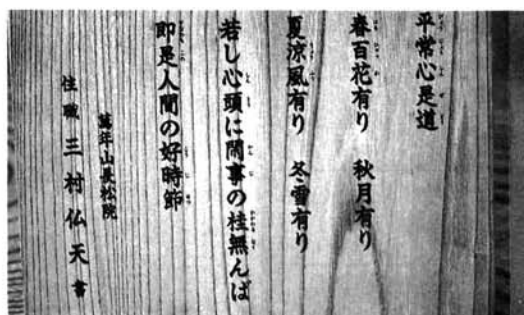 平常心是道
春百花有り 秋月有り
夏涼風有り 冬雪有り
若し心頭に閑事の桂無んば
即是人間の好時節
萬年山長松院
住職 三村仏天 書